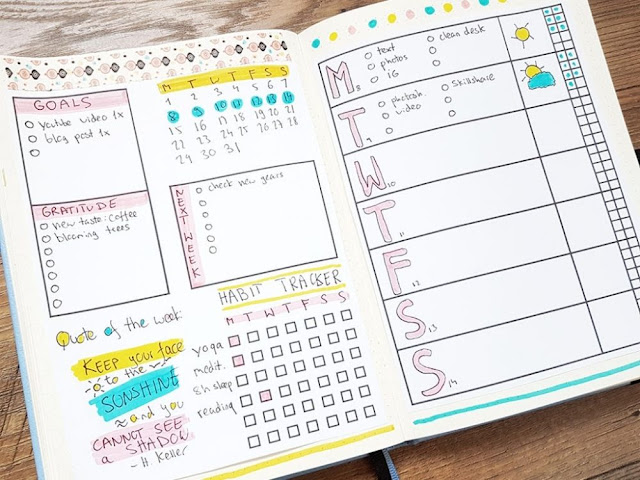 GOALS
youtube video 1x
blog post 1x
M T W T F S S
1 2 3 4 5 6 7
8 9 10 11 12 13 14
15 16 17 18 19 20 21
22 23 24 25 26 27 28
29 30 31
GRATITUDE
new taste: coffee
blooming trees
NEXT WEEK
check new gears
Quote of the week
KEEP your face
to the
SUNSHINE
and you
CANNOT SEE
a SHADOW
- H. Keller
HABIT TRACKER
M T W T F S S
yoga
medit.
8h sleep
reading
M 8
text
photos
IG
clean desk
T 9
photosh.
video
skillshare
W 10
T 11
F 12
S 13
S 14